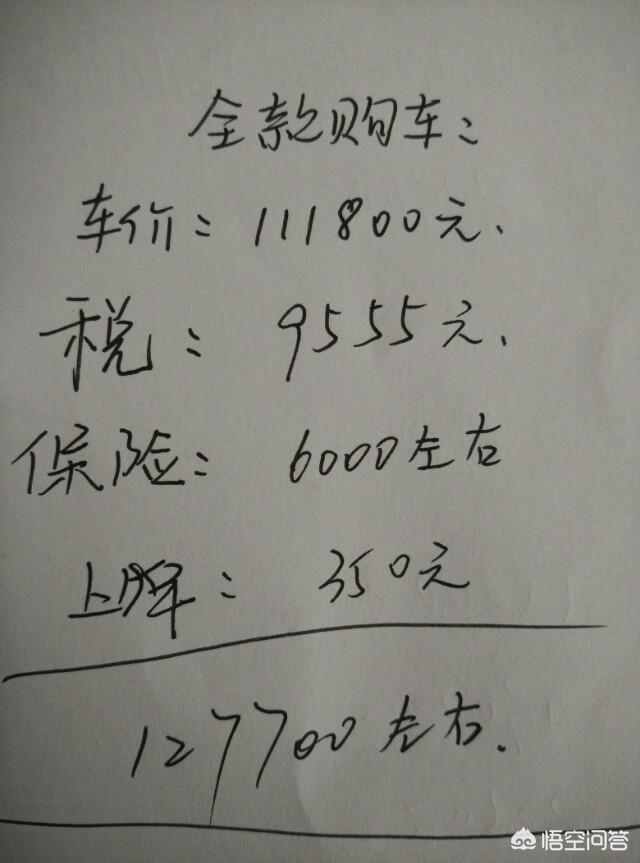 全款购车:
车价: 111800元.
税: 9555元.
保险: 6000左右
上牌: 350元
127700左右.
悟空问答